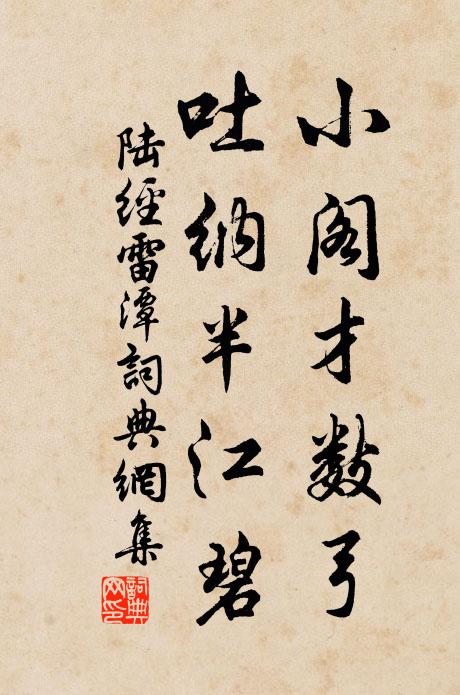 小阁才数弓
吐纳半江碧
陆經雷潭詞典網集
詞典